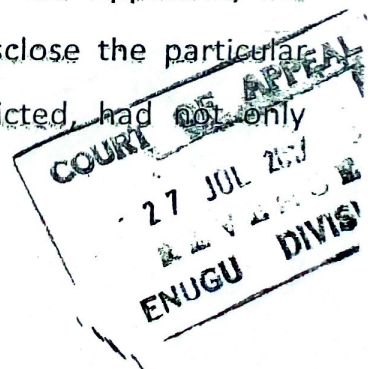 sclose the particular
icted, had not only
COURT OF APPEAL
27 JUL
ENUGU DIVIS